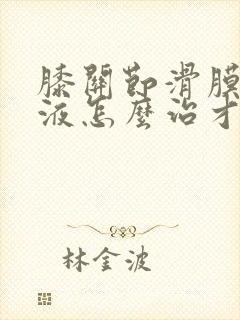 膝關節滑膜
液怎麼治才
林金波